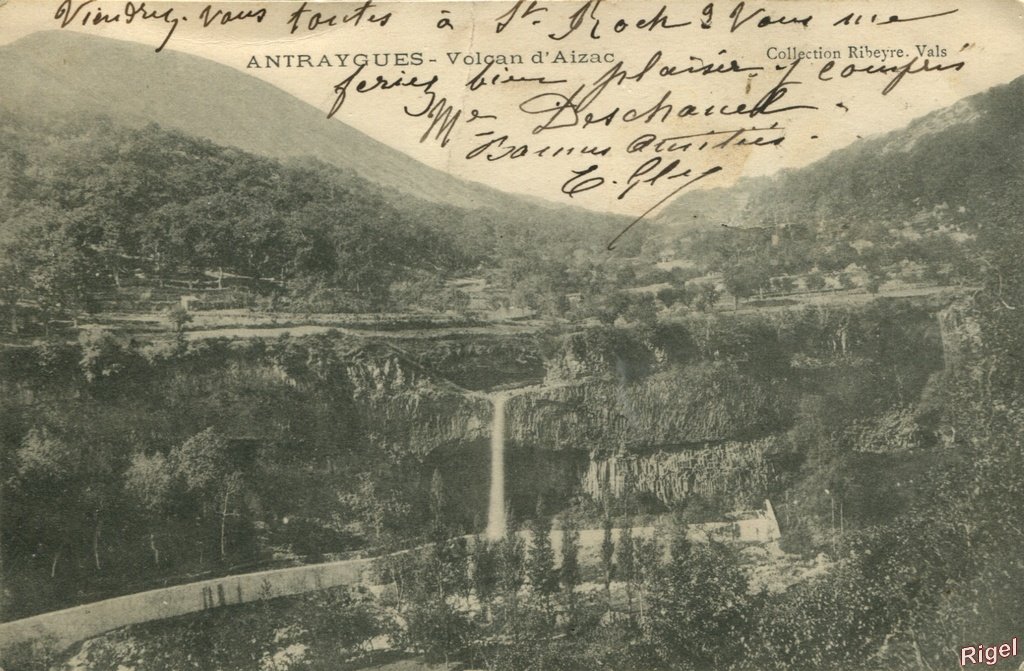 Viendrez-vous toutes à St Roch? Vous me
ANTRAYGUES - Volcan d'Aizac
Collection Ribeyre. Vals
feriez bien plaisir, y compris
Me Deschanel.
Bonnes amitiés.
Rigel